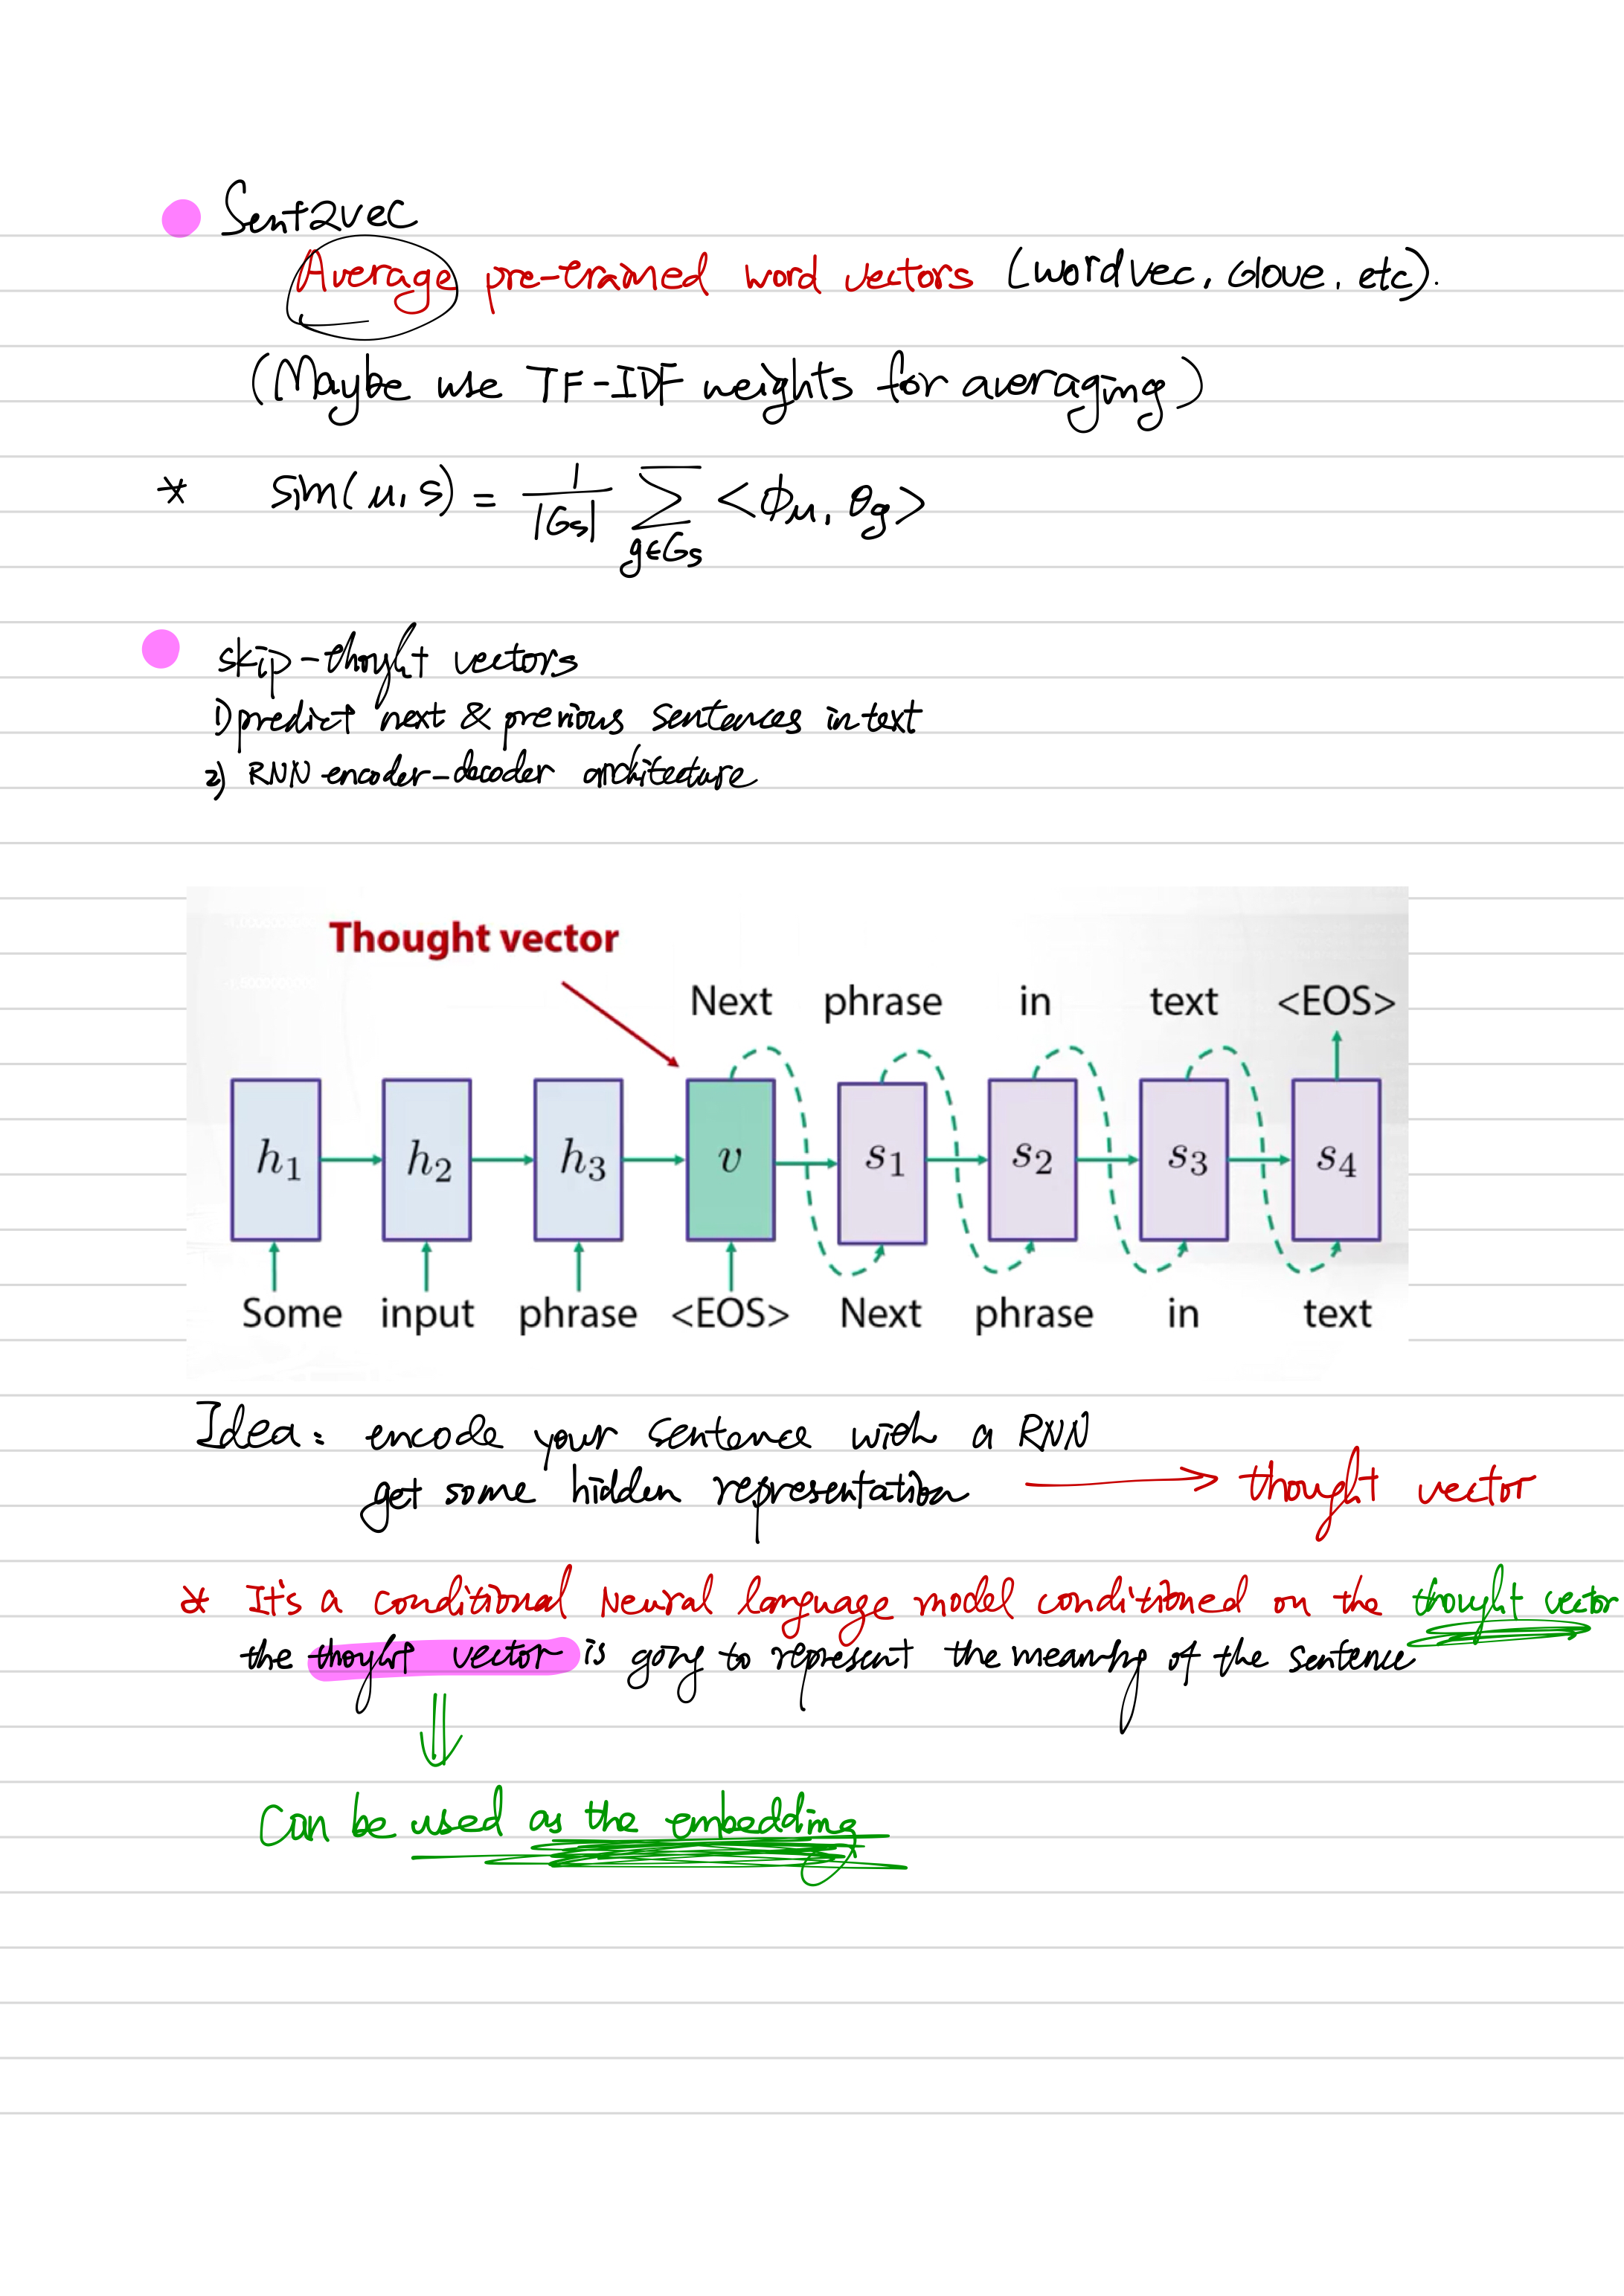 Sent2vec
Average pre-trained word vectors (wordvec, Glove, etc).
(Maybe use TF-IDF weights for averaging)
* Sim(u, s) = 1/|Gs| ∑ g∈Gs <ϕu, θg>
skip-thought vectors
1) predict next & previous sentences in text
2) RNN encoder-decoder architecture
Thought vector
Next phrase in text <EOS>
h1 h2 h3 v s1 s2 s3 s4
Some input phrase <EOS> Next phrase in text
Idea: encode your sentence with a RNN
get some hidden representation → thought vector
* It's a conditional Neural language model conditioned on the thought vector
the thought vector is going to represent the meaning of the sentence
⇓
Can be used as the embedding